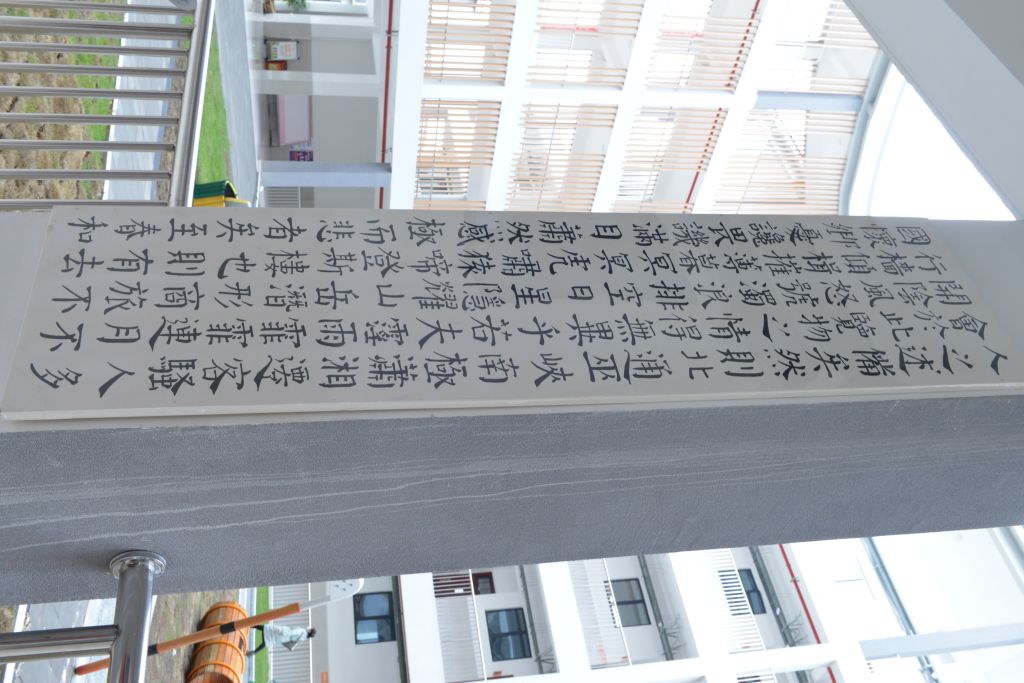 人之述備矣然則北通巫峽南極瀟湘遷客騷人多
會於此覽物之情得無異乎若夫霪雨霏霏連月不
開陰風怒號濁浪排空日星隱耀山岳潛形商旅不
行檣傾楫摧薄暮冥冥虎嘯猿啼登斯樓也則有去
國懷鄉憂讒畏譏滿目蕭然感極而悲者矣至春和